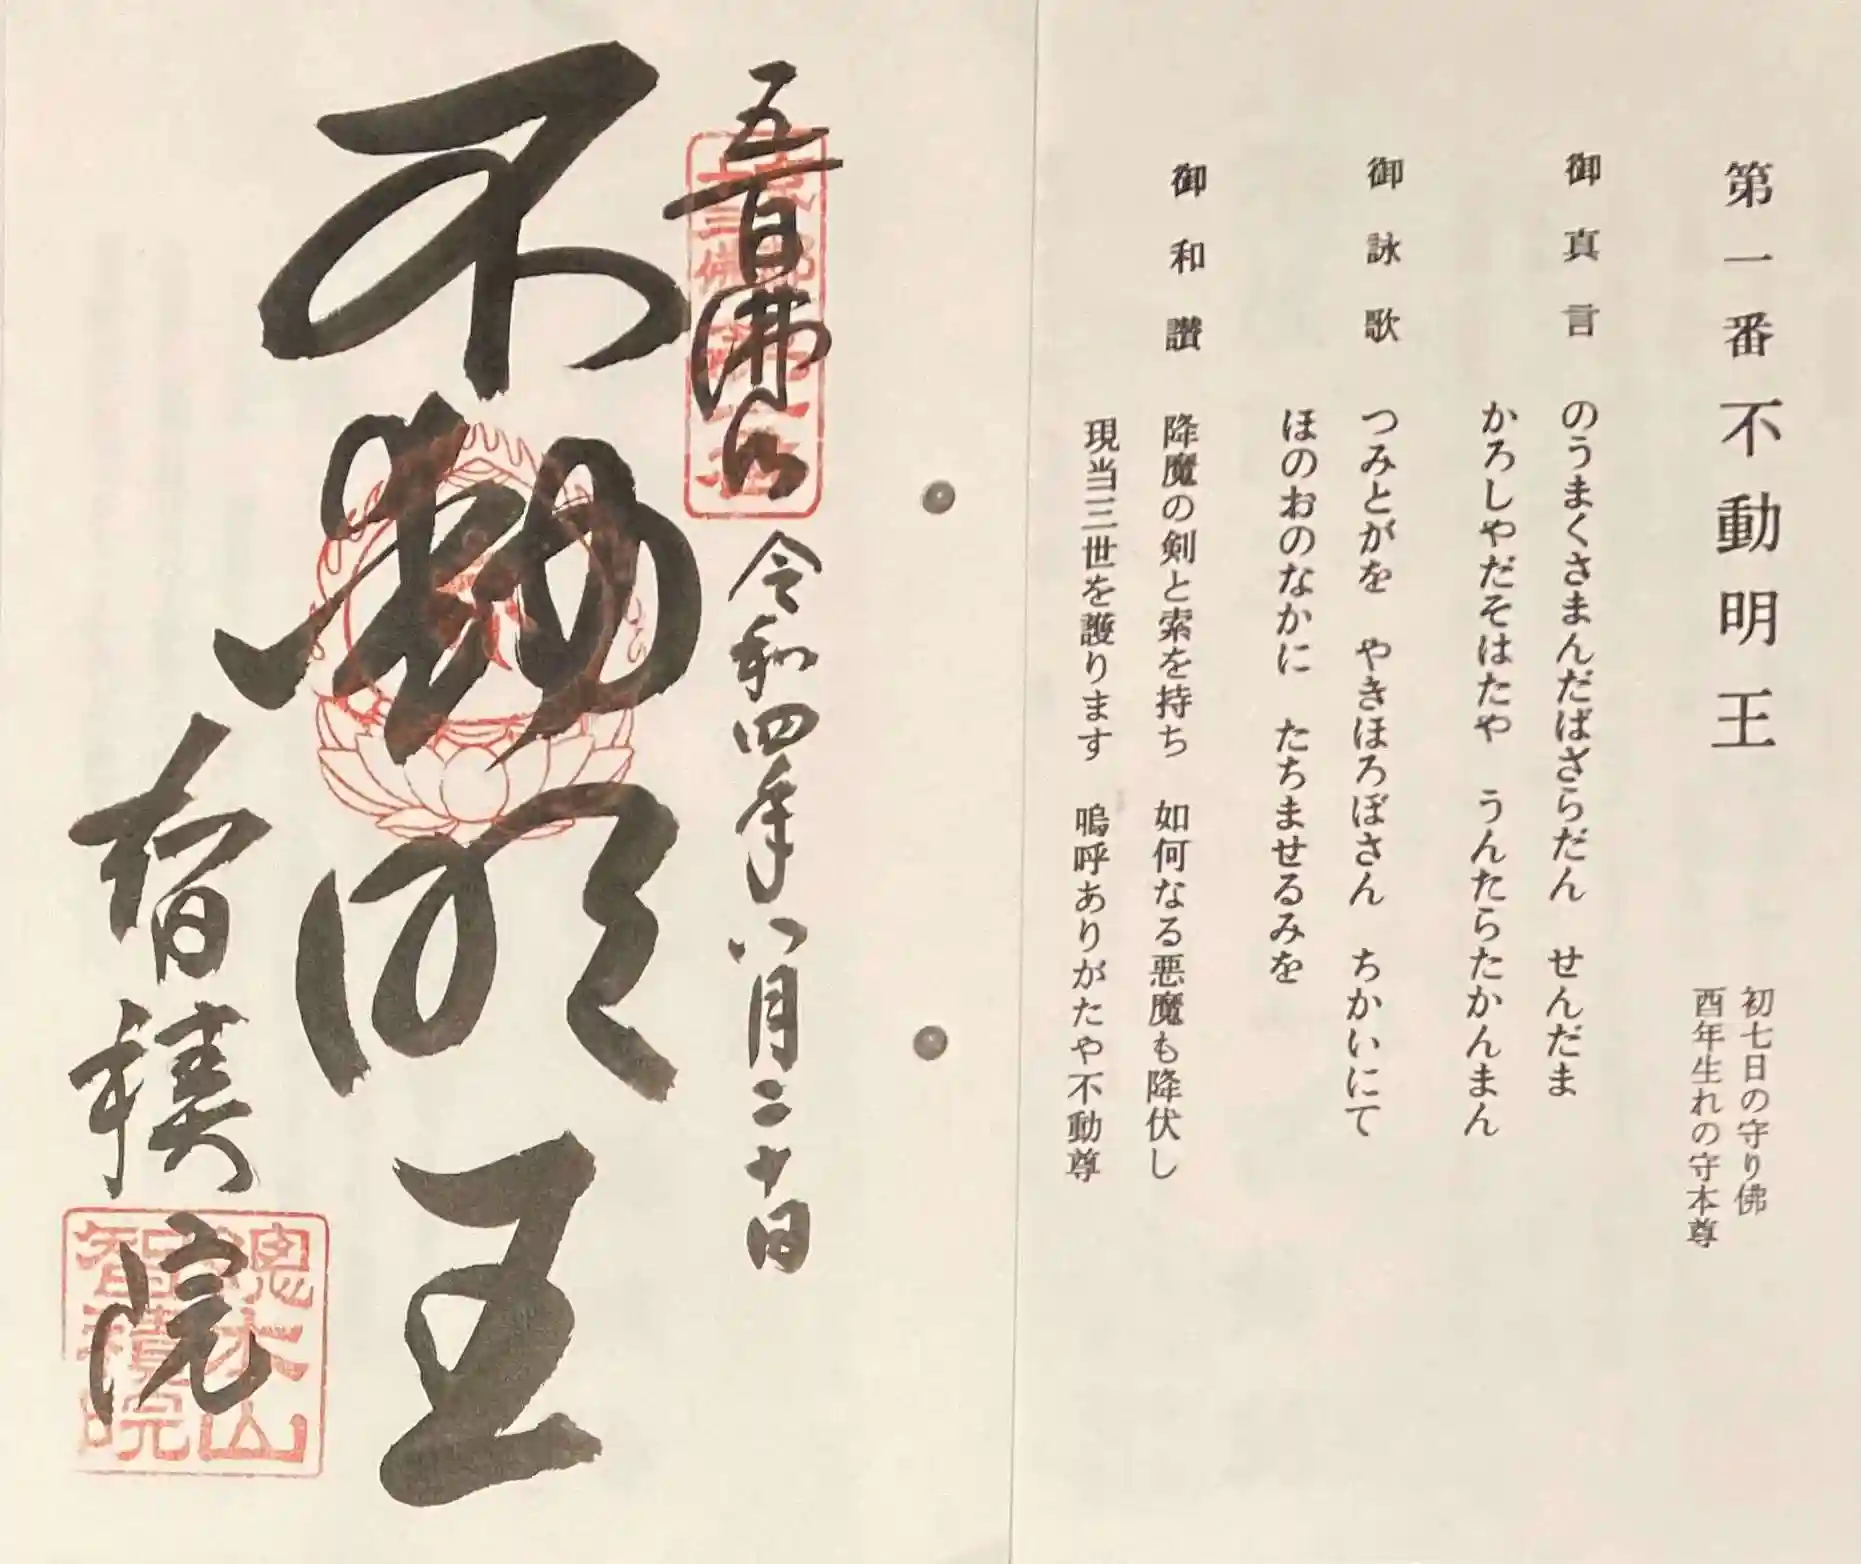 第一番不動明王
初七日の守り佛
酉年生れの守本尊
御真言 のうまくさまんだばざらだん せんだま
かろしやだそはたや うんたらたかんまん
御詠歌 つみとがを やきほろぼさん ちかいにて
ほのおのなかに たちませるみを
御和讃 降魔の剣と索を持ち 如何なる悪魔も降伏し
現当三世を護ります 嗚呼ありがたや不動尊
令和四年八月二十日
不動明王
智積院
總本山
智積院